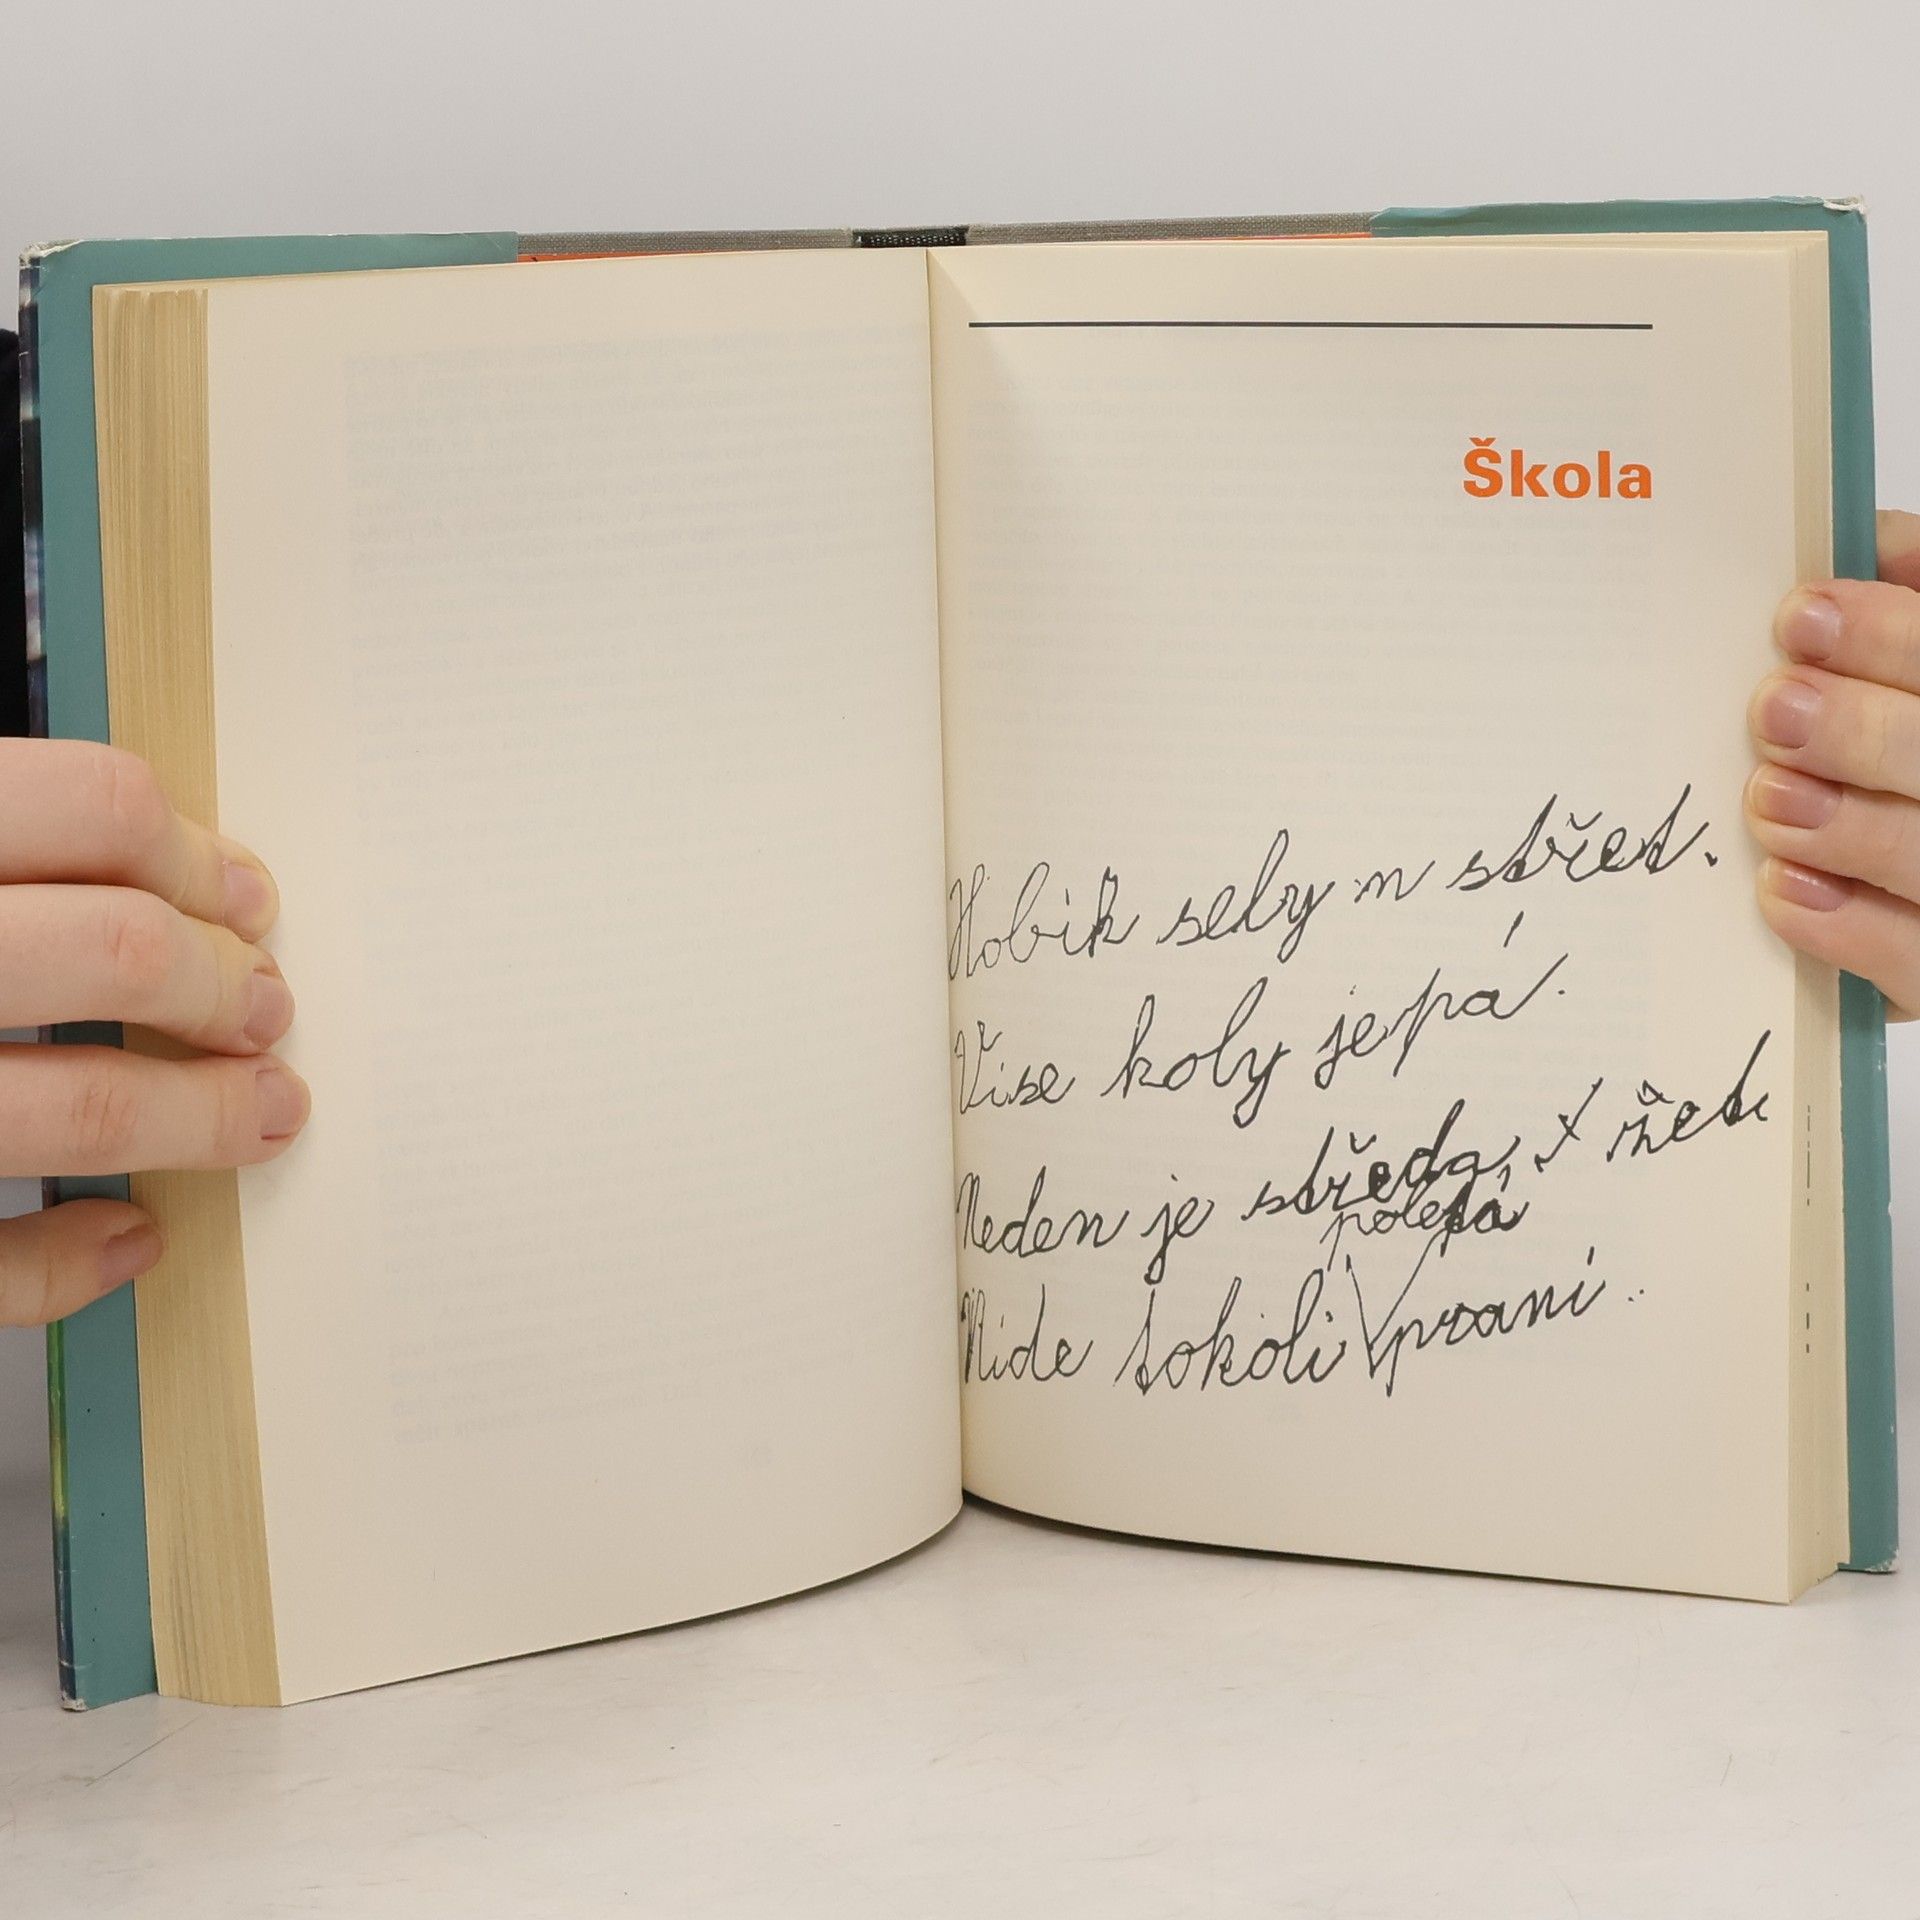 Škola
Hobik seby m střet.
Vise koly jepá.
Neden je středa, x řet
poletá
Nide sokoli praní..